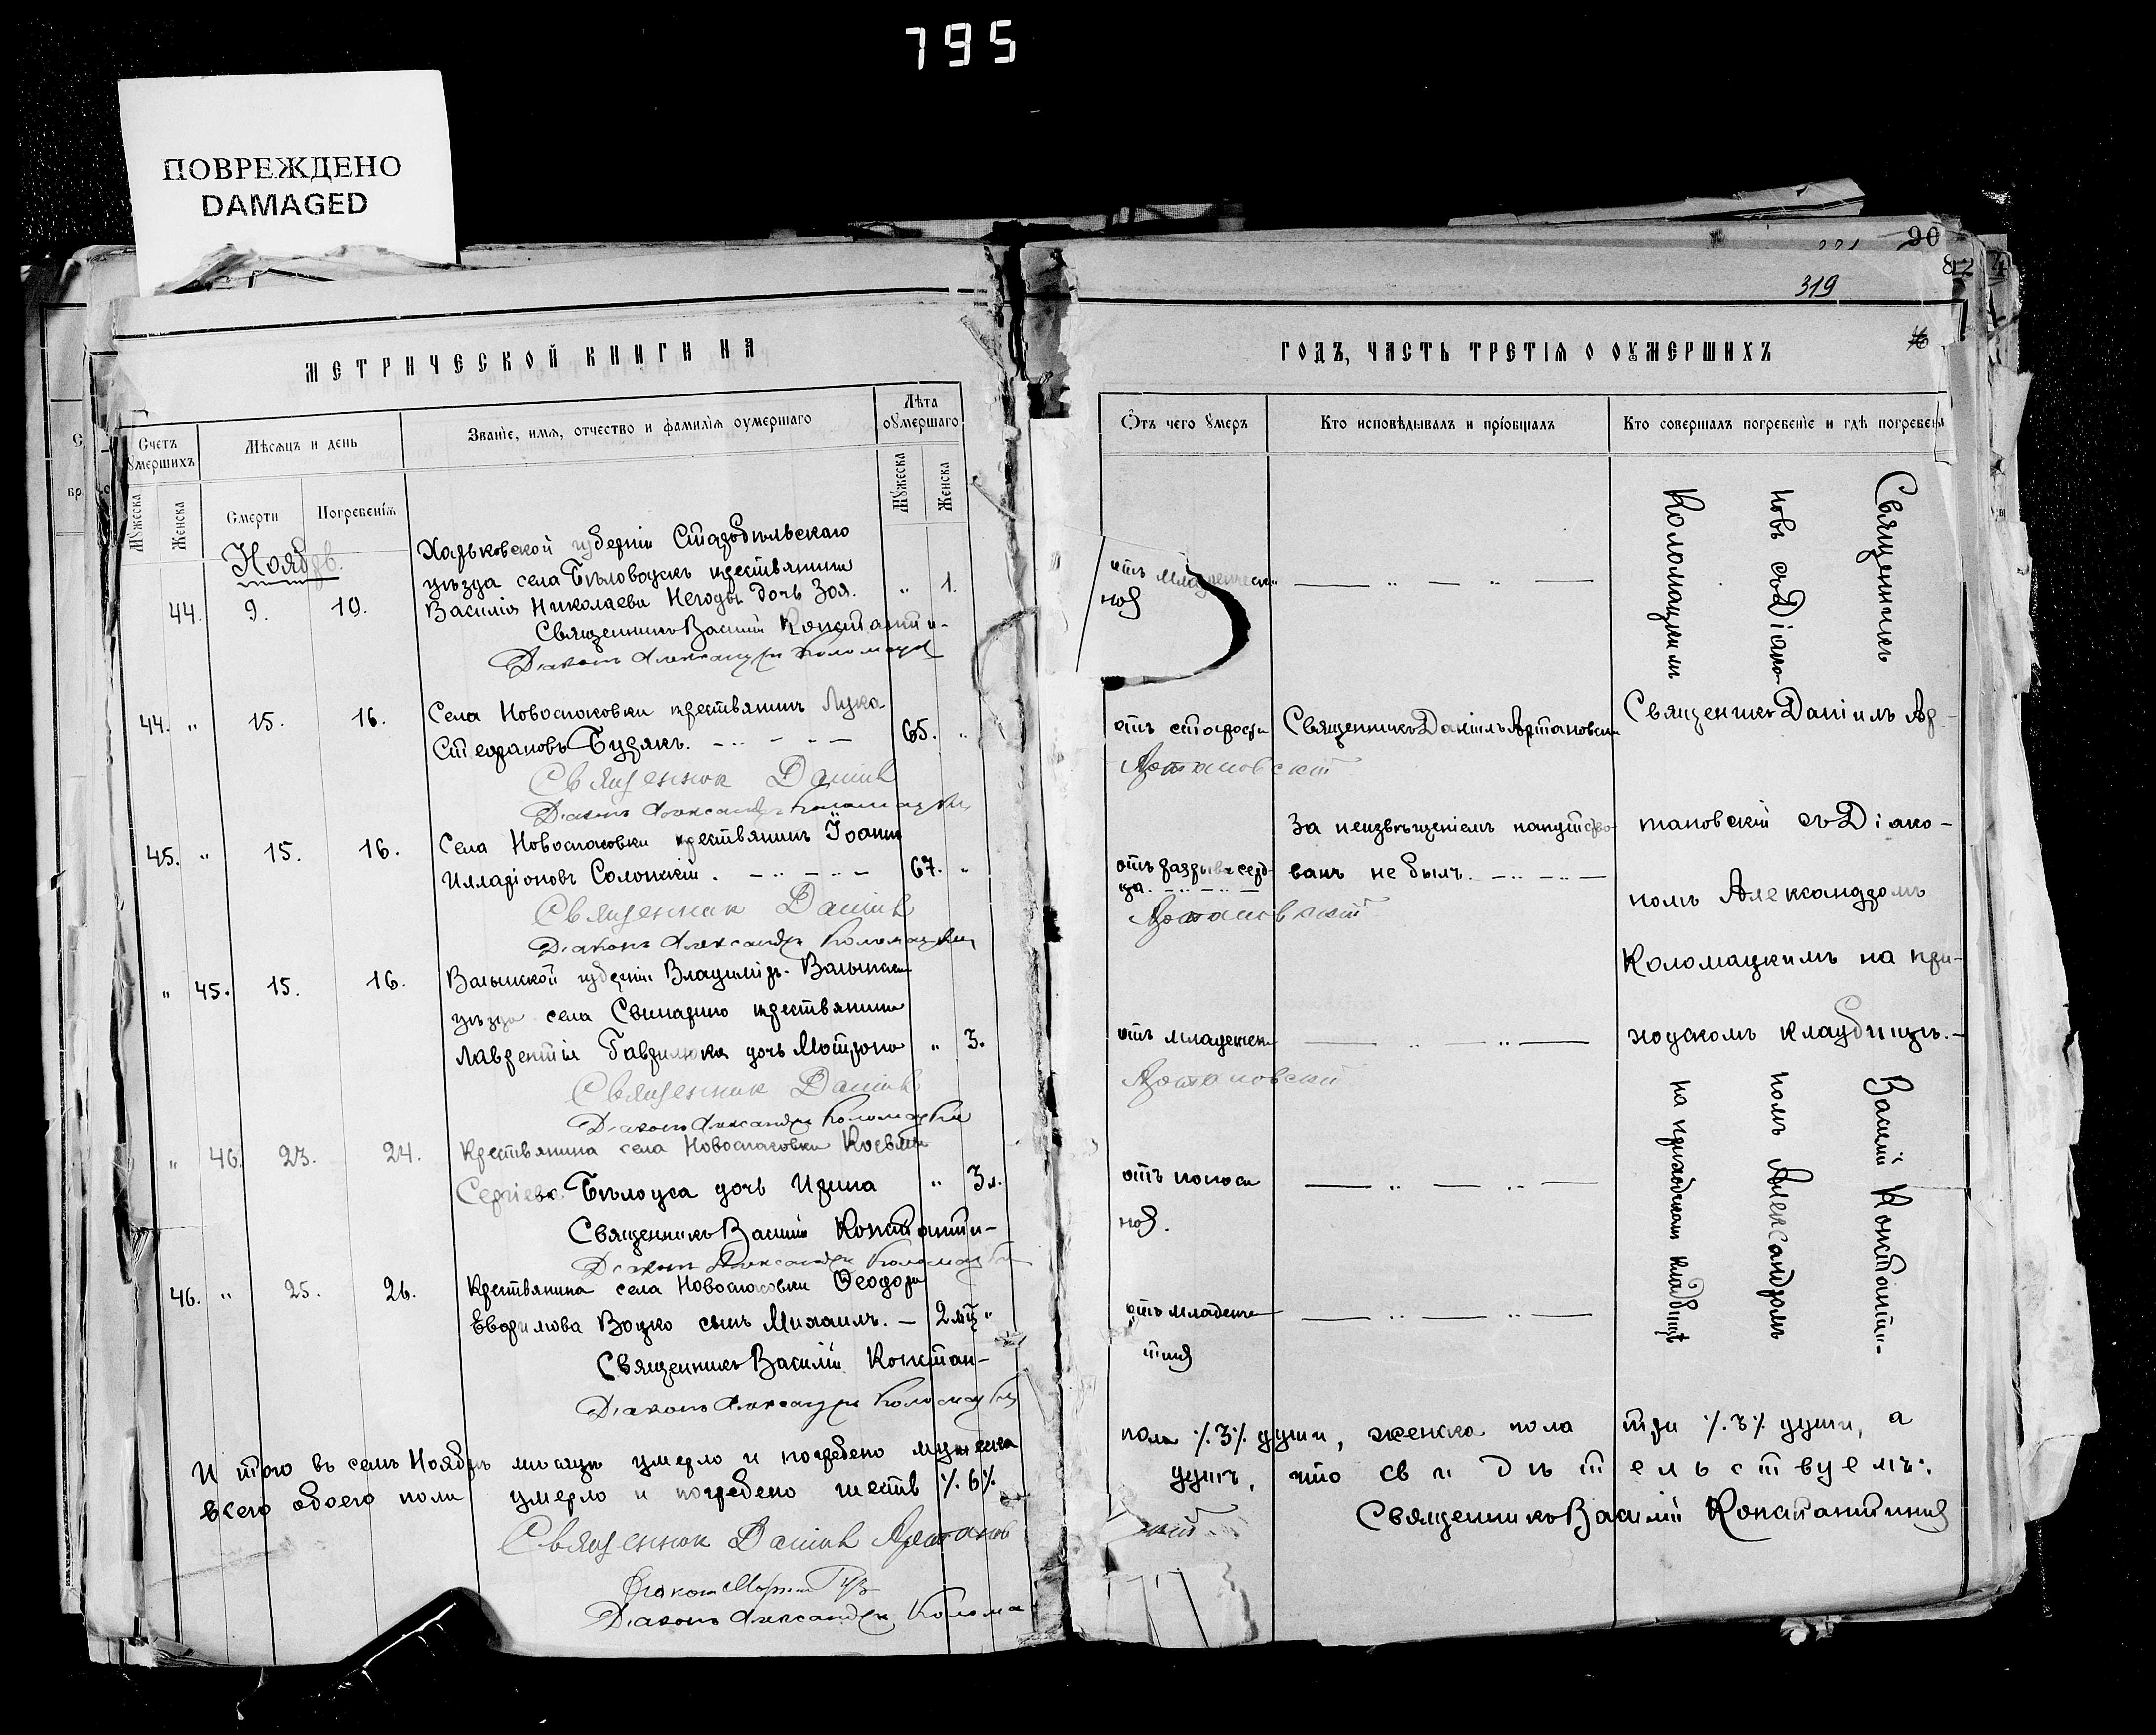 795
ПОВРЕЖДЕНО
DAMAGED
90
82
4
319
МЕТРИЧЕСКОЙ КНИГИ НА
ГОДЪ, ЧАСТЬ ТРЕТІЯ О ОУМЕРШИХЪ
Счетъ умершихъ
Мѣсяцъ и день
Званіе, имя, отчество и фамилія оумершаго
Лѣта оумершаго
Мужеска
Женска
Смерти
Погребенія
Мужеска
Женска
Отъ чего умеръ
Кто исповѣдывалъ и пріобщалъ
Кто совершалъ погребеніе и гдѣ погребены
Ноябрь.
Харьковской губерніи Старобѣльскаго
уѣзда села Бѣловодскъ крестьянина
44. 9. 10. Василія Николаева Негоды дочь Зоя. „ 1.
отъ младенческ
ной
Священникъ Василій Константи-
Діаконъ Александръ Коломацкій
44. „ 15. 16. Села Новоспасовки крестьянинъ Лука
Стефановъ Бурякъ. 65. „
отъ старости
Священникъ Даніилъ Артановскій
Священник Даніил
Артановскій
Діаконъ Александръ Коломацкій
45. „ 15. 16. Села Новоспасовки крестьянинъ Іоаннъ
Илларіоновъ Солонскій. 67. „
отъ разрыва серд-
ца.
За неизвѣщеніемъ напутство-
ванъ не былъ.
Священник Даніил
Артановскій
Діаконъ Александръ Коломацкій
„ 45. 15. 16. Волынской губерніи Владимір-Волынскаго
уѣзда села Свинарино крестьянина
Лаврентія Гаврилюка дочь Мотрона „ 3.
отъ младенч
Священник Даніил
Артановскій
Діаконъ Александръ Коломацкій
„ 46. 23. 24. Крестьянина села Новоспасовки Косьмы
Сергіева Бѣлоуса дочь Ирина „ 3 л.
отъ поноса
ной.
Священникъ Василій Константи-
Діаконъ Александръ Коломацкій
46. „ 25. 26. Крестьянина села Новоспасовки Ѳеодора
Евфимова Воцко сынъ Михаилъ. 2 мц „
отъ младенче
Священникъ Василій Констан-
тиній
Діаконъ Александръ Коломацкій
Священникъ
Василій Константи-
новъ съ Діако-
номъ Александромъ
Коломацкимъ
на приходскомъ кладбищѣ
Священникъ Даніилъ Ар-
тановскій съ Діако-
номъ Александромъ
Коломацкимъ на при-
ходскомъ кладбищѣ.
Итого въ семъ Ноябрѣ мѣсяцѣ умерло и погребено мужеска
пола ⁒3⁒ души, женска пола три ⁒3⁒ души, а
всего обоего пола умерло и погребено шесть ⁒6⁒
душъ, что свидѣтельствуемъ:
Священникъ Василій Константиній
Священник Даніил Артанов
скій
Діаконъ Александръ Колома